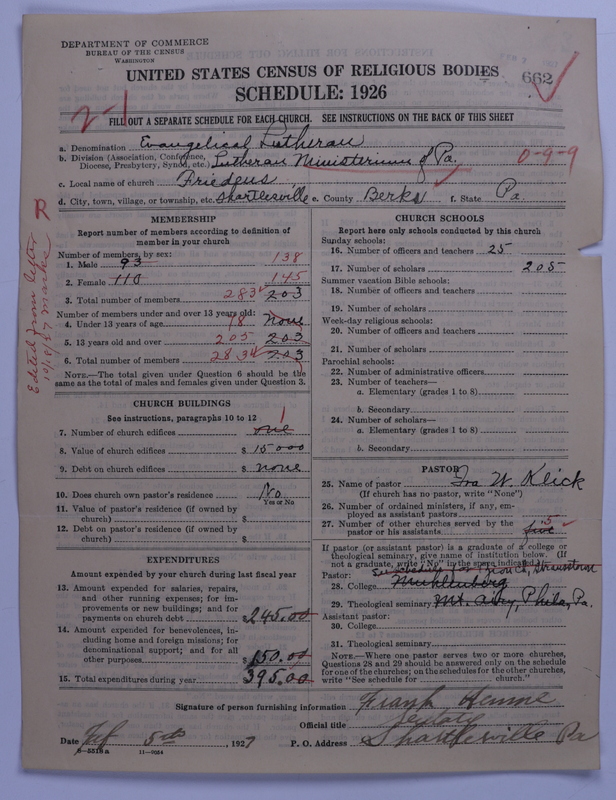 DEPARTMENT OF COMMERCE
BUREAU OF THE CENSUS
WASHINGTON
UNITED STATES CENSUS OF RELIGIOUS BODIES
662
SCHEDULE: 1926
2-1
FILL OUT A SEPARATE SCHEDULE FOR EACH CHURCH. SEE INSTRUCTIONS ON THE BACK OF THIS SHEET
a. Denomination Evangelical Lutheran
b. Division (Association, Conference, Diocese, Presbytery, Synod, etc.) Lutheran Ministerium of Pa. 0-9-9
c. Local name of church Friedens
d. City, town, village, or township, etc. Shartlesville e. County Berks f. State Pa.
R
Edited from letter
MEMBERSHIP
Report number of members according to definition of
member in your church
Number of members, by sex:
1. Male 93 138
2. Female 110 145
3. Total number of members 283 203
Number of members under and over 13 years old:
4. Under 13 years of age 78 none
5. 13 years old and over 205 203
6. Total number of members 283 203
NOTE.—The total given under Question 6 should be the
same as the total of males and females given under Question 3.
CHURCH BUILDINGS
See instructions, paragraphs 10 to 12
7. Number of church edifices one 1
8. Value of church edifices $ 15000
9. Debt on church edifices $ none
10. Does church own pastor's residence No
Yes or No
11. Value of pastor's residence (if owned by
church) $
12. Debt on pastor's residence (if owned by
church) $
EXPENDITURES
Amount expended by your church during last fiscal year
13. Amount expended for salaries, repairs,
and other running expenses; for im-
provements or new buildings; and for
payments on church debt $245.00
14. Amount expended for benevolences, in-
cluding home and foreign missions; for
denominational support; and for all
other purposes $150.00
15. Total expenditures during year $395.00
CHURCH SCHOOLS
Report here only schools conducted by this church
Sunday schools:
16. Number of officers and teachers 25
17. Number of scholars 205
Summer vacation Bible schools:
18. Number of officers and teachers
19. Number of scholars
Week-day religious schools:
20. Number of officers and teachers
21. Number of scholars
Parochial schools:
22. Number of administrative officers
23. Number of teachers—
a. Elementary (grades 1 to 8)
b. Secondary
24. Number of scholars—
a. Elementary (grades 1 to 8)
b. Secondary
PASTOR
25. Name of pastor Ira W. Klick
(If church has no pastor, write "None")
26. Number of ordained ministers, if any, em-
ployed as assistant pastors
27. Number of other churches served by the
pastor or his assistants five 5
If pastor (or assistant pastor) is a graduate of a college or
theological seminary, give name of institution below. (If
not a graduate, write "No" in the space indicated.)
Pastor:
28. College Muhlenberg
29. Theological seminary Mt. Airy, Phila, Pa.
Assistant pastor:
30. College
31. Theological seminary
NOTE.—Where one pastor serves two or more churches,
Questions 28 and 29 should be answered only on the schedule
for one of the churches; on the schedules for the other churches,
write "See schedule for church."
Signature of person furnishing information Frank
Official title
Date Feb 5th, 1927 P. O. Address Shartlesville Pa
8-5518a 11-9554